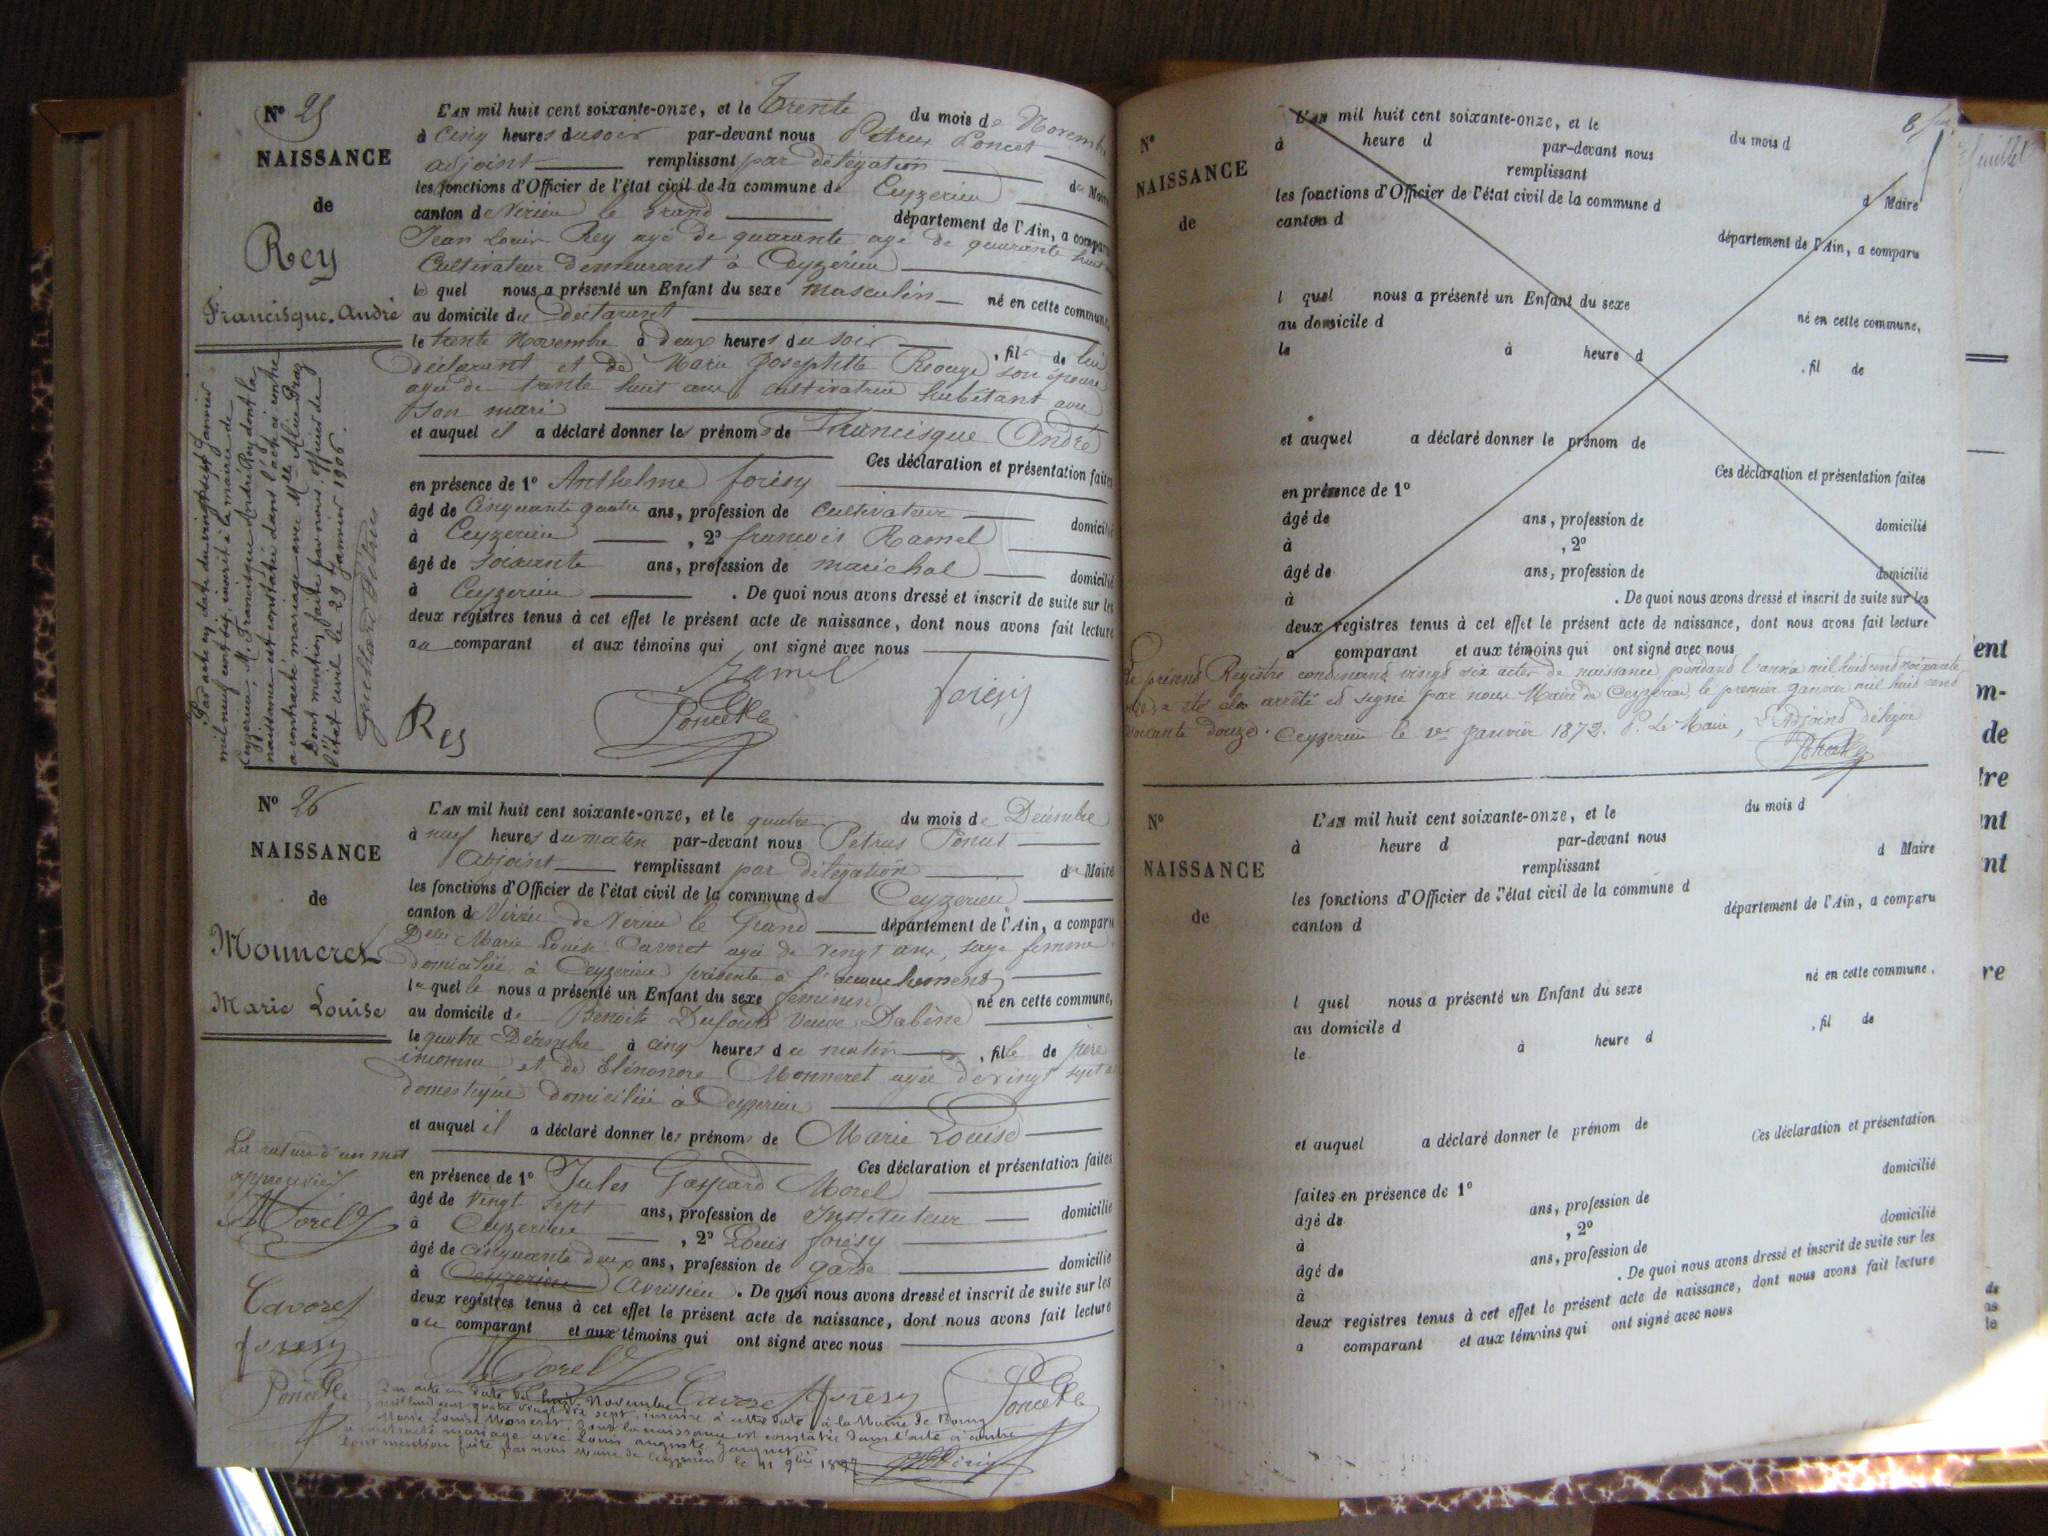 N° 25
NAISSANCE
de
Rey
Francisque André
L'AN mil huit cent soixante-onze, et le trente du mois de Novembre
à cinq heures du soir par-devant nous Pétrus Poncet
adjoint remplissant par délégation du Maire
les fonctions d'Officier de l'état civil de la commune de Ceyzerieu
canton de Virieu le Grand département de l'Ain, a comparu
Jean Louis Rey agé de quarante agé de quarante huit
Cultivateur demeurant à Ceyzerieu
le quel nous a présenté un Enfant du sexe masculin né en cette commune,
au domicile du déclarant
le trente Novembre à deux heures du soir, fils de lui
déclarant et de Marie Josephtte Reouge son épouse
agée de trente huit ans, cultivatrice habitant avec
son mari
et auquel il a déclaré donner les prénoms de Francisque André
Ces déclaration et présentation faites
en présence de 1° Anthelme forésy
âgé de cinquante quatre ans, profession de cultivateur domicilié
à Ceyzerieu, 2° francois Ramel
âgé de soixante ans, profession de maréchal domicilié
à Ceyzerieu. De quoi nous avons dressé et inscrit de suite sur les
deux registres tenus à cet effet le présent acte de naissance, dont nous avons fait lecture
au comparant et aux témoins qui ont signé avec nous
Ramel
Rey Poncet forésy
Par acte en date du vingt sept Janvier
mil neuf cent six, inscrit à la mairie de
Ceyzerieu, M. Francisque André Rey dont la
naissance est constatée dans l'acte ci-contre
a contracté mariage avec Melle Alice Praz
Dont mention faite par nous, officier de
l'état civil le 29 Janvier 1906.
N° 26
NAISSANCE
de
Monneret
Marie Louise
L'AN mil huit cent soixante-onze, et le quatre du mois de Décembre
à neuf heures du matin par-devant nous Pétrus Poncet
Adjoint remplissant par délégation du Maire
les fonctions d'Officier de l'état civil de la commune de Ceyzerieu
canton de Virieu de Virieu le Grand département de l'Ain, a comparu
Delle Marie Louise Cavoret agée de vingt ans, sage femme
domiciliée à Ceyzerieu présente à l'accouchement
laquelle nous a présenté un Enfant du sexe féminin né en cette commune,
au domicile de Benoite Dufour veuve Dabène
le quatre Décembre à cinq heures du matin, fille de père
inconnu et de Elénonore Monneret agée de vingt sept ans
domestique domiciliée à Ceyzerieu
et auquel il a déclaré donner les prénoms de Marie Louise
Ces déclaration et présentation faites
en présence de 1° Jules Gaspard Morel
âgé de vingt sept ans, profession de Instituteur domicilié
à Ceyzerieu, 2° Louis forésy
âgé de cinquante deux ans, profession de garde domicilié
à Ceyzerieu Avrissieu. De quoi nous avons dressé et inscrit de suite sur les
deux registres tenus à cet effet le présent acte de naissance, dont nous avons fait lecture
au comparant et aux témoins qui ont signé avec nous
Morel Cavoret forésy Poncet
La rature d'un mot
approuvée
Morel
Cavoret
forésy
Poncet
Par acte en date du huit Novembre
mil huit cent quatre vingt dix sept, inscrire à cette date à la Mairie de Bourg
Marie Louise Moneret, dont la naissance est constatée dans l'acte ci contre
a contracté mariage avec Louis auguste Jacquet
Dont mention faite par nous Maire de Ceyzerieu le 11 9bre 1897
8
feuillet
N°
NAISSANCE
de
L'AN mil huit cent soixante-onze, et le du mois d
à heure d par-devant nous
remplissant d Maire
les fonctions d'Officier de l'état civil de la commune d
canton d département de l'Ain, a comparu
l quel nous a présenté un Enfant du sexe né en cette commune,
au domicile d
le à heure d , fil de
et auquel a déclaré donner le prénom de
Ces déclaration et présentation faites
en présence de 1°
âgé de ans, profession de domicilié
à , 2°
âgé de ans, profession de domicilié
à . De quoi nous avons dressé et inscrit de suite sur les
deux registres tenus à cet effet le présent acte de naissance, dont nous avons fait lecture
a comparant et aux témoins qui ont signé avec nous
Le présent Registre contenant vingt six actes de naissance pendant l'année mil huit cent soixante
onze a été clos arrêté et signé par nous Maire de Ceyzerieu le premier Janvier mil huit cent
soixante douze. Ceyzerieu le 1er Janvier 1872. P. Le Maire, L'Adjoint délégué
Poncet
N°
NAISSANCE
de
L'AN mil huit cent soixante-onze, et le du mois d
à heure d par-devant nous
remplissant d Maire
les fonctions d'Officier de l'état civil de la commune d
canton d département de l'Ain, a comparu
l quel nous a présenté un Enfant du sexe né en cette commune,
au domicile d
le à heure d , fil de
et auquel a déclaré donner le prénom de
Ces déclaration et présentation
faites en présence de 1° domicilié
âgé de ans, profession de
à , 2° domicilié
âgé de ans, profession de
à . De quoi nous avons dressé et inscrit de suite sur les
deux registres tenus à cet effet le présent acte de naissance, dont nous avons fait lecture
a comparant et aux témoins qui ont signé avec nous